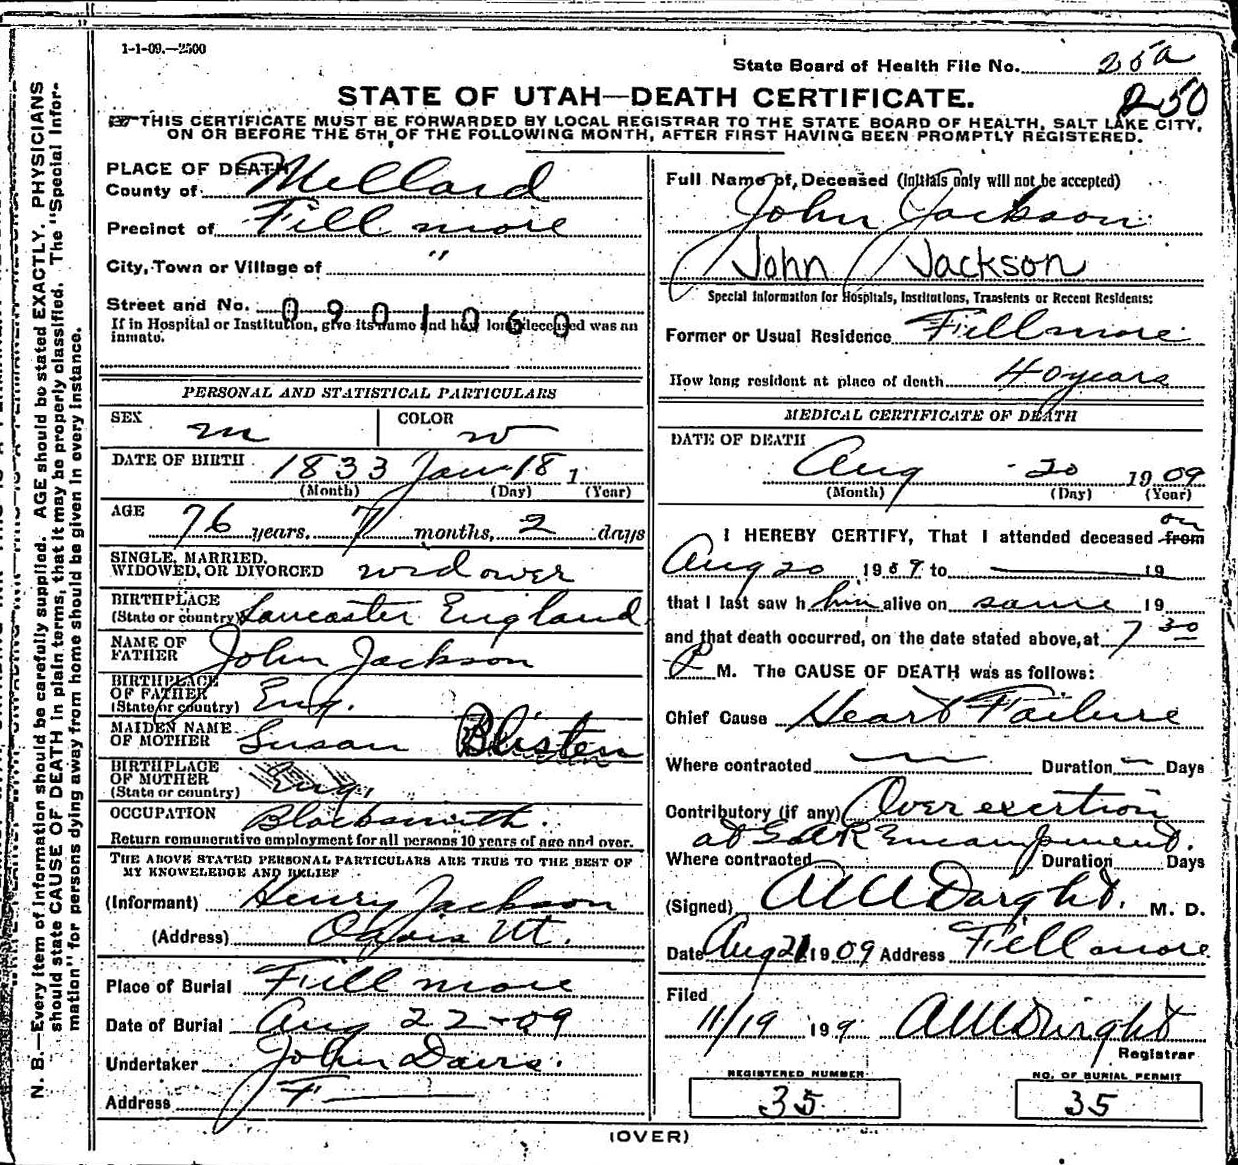 1-1-09.—2500
State Board of Health File No. 25a
250
STATE OF UTAH—DEATH CERTIFICATE.
THIS CERTIFICATE MUST BE FORWARDED BY LOCAL REGISTRAR TO THE STATE BOARD OF HEALTH, SALT LAKE CITY,
ON OR BEFORE THE 5TH OF THE FOLLOWING MONTH, AFTER FIRST HAVING BEEN PROMPTLY REGISTERED.
PLACE OF DEATH
County of Millard
Precinct of Fillmore
City, Town or Village of "
Street and No. 0901060
If in Hospital or Institution, give its name and how long deceased was an
inmate.
PERSONAL AND STATISTICAL PARTICULARS
SEX m COLOR w
DATE OF BIRTH 1833 Jan 18 1
(Month) (Day) (Year)
AGE 76 years, 7 months, 2 days
SINGLE, MARRIED,
WIDOWED, OR DIVORCED widower
BIRTHPLACE
(State or country) Lancaster England
NAME OF
FATHER John Jackson
BIRTHPLACE
OF FATHER
(State or country) Eng.
MAIDEN NAME
OF MOTHER Susan Blisten
BIRTHPLACE
OF MOTHER
(State or country) Eng.
OCCUPATION Blacksmith.
Return remunerative employment for all persons 10 years of age and over.
THE ABOVE STATED PERSONAL PARTICULARS ARE TRUE TO THE BEST OF
MY KNOWLEDGE AND BELIEF
(Informant) Henry Jackson
(Address) Oasis Ut.
Place of Burial Fillmore
Date of Burial Aug 22-09
Undertaker John Davis.
Address F
Full Name of Deceased (Initials only will not be accepted)
John Jackson
John Jackson
Special Information for Hospitals, Institutions, Transients or Recent Residents:
Former or Usual Residence Fillmore
How long resident at place of death 40 years
MEDICAL CERTIFICATE OF DEATH
DATE OF DEATH
Aug 20 1909
(Month) (Day) (Year)
on
I HEREBY CERTIFY, That I attended deceased from
Aug 20 1909 to 19
that I last saw h him alive on same 19
and that death occurred, on the date stated above, at 7 30
P M. The CAUSE OF DEATH was as follows:
Chief Cause Heart Failure
Where contracted Duration — Days
Contributory (if any) Over exertion
at GAR Encampment.
Where contracted Duration Days
(Signed) M. D.
Date Aug 21 1909 Address Fillmore
Filed
11/19 199
Registrar
REGISTERED NUMBER
35
NO. OF BURIAL PERMIT
35
(OVER)
N. B.—Every item of information should be carefully supplied. AGE should be stated EXACTLY. PHYSICIANS
should state CAUSE OF DEATH in plain terms, that it may be properly classified. The "Special Infor-
mation" for persons dying away from home should be given in every instance.